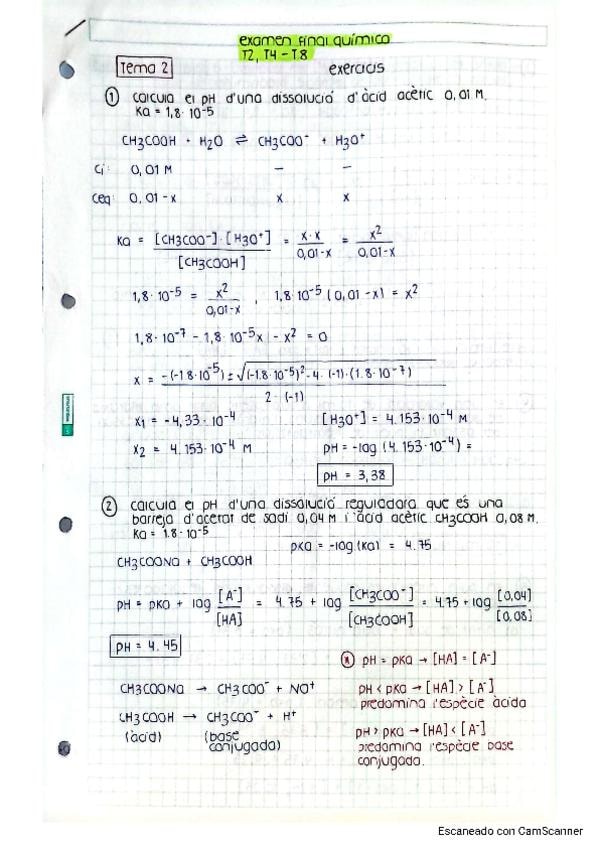 examen final químico
T2, T4 - T.8
Tema 2
exercicis
① calcula el pH d'una dissolució d'àcid acètic 0,01 M.
Ka = 1,8· 10⁻⁵
CH3COOH + H2O ⇌ CH3COO⁻ + H3O⁺
Ci: 0,01 M – –
Ceq: 0,01 - x x x
Ka = [CH3COO⁻]·[H3O⁺] / [CH3COOH] = x·x / 0,01-x = x² / 0,01-x
1,8· 10⁻⁵ = x² / 0,01-x , 1,8· 10⁻⁵ (0,01 - x) = x²
1,8· 10⁻⁷ - 1,8· 10⁻⁵x - x² = 0
x = -(-1.8· 10⁻⁵) ± √(-1.8· 10⁻⁵)² - 4· (-1)· (1.8· 10⁻⁷) / 2· (-1)
x1 = - 4,33· 10⁻⁴ [H3O⁺] = 4.153· 10⁻⁴ M
x2 = 4.153· 10⁻⁴ M pH = -log (4.153· 10⁻⁴) =
pH = 3,38
② calcula el pH d'una dissolució reguladora que és una
barreja d'acetat de sodi 0,04 M i àcid acètic CH3COOH 0,08 M.
Ka = 1.8· 10⁻⁵
pKa = -log (Ka) = 4.75
CH3COONa + CH3COOH
pH = pKa + log [A⁻] / [HA] = 4.75 + log [CH3COO⁻] / [CH3COOH] = 4.75 + log [0,04] / [0,08]
pH = 4.45
* pH = pKa → [HA] = [A⁻]
CH3COONa → CH3COO⁻ + Na⁺
pH < pKa → [HA] > [A⁻]
predomina l'espècie àcida
CH3COOH → CH3COO⁻ + H⁺
(àcid) (base conjugada)
pH > pKa → [HA] < [A⁻]
predomina l'espècie base
conjugada.
Escaneado con CamScanner